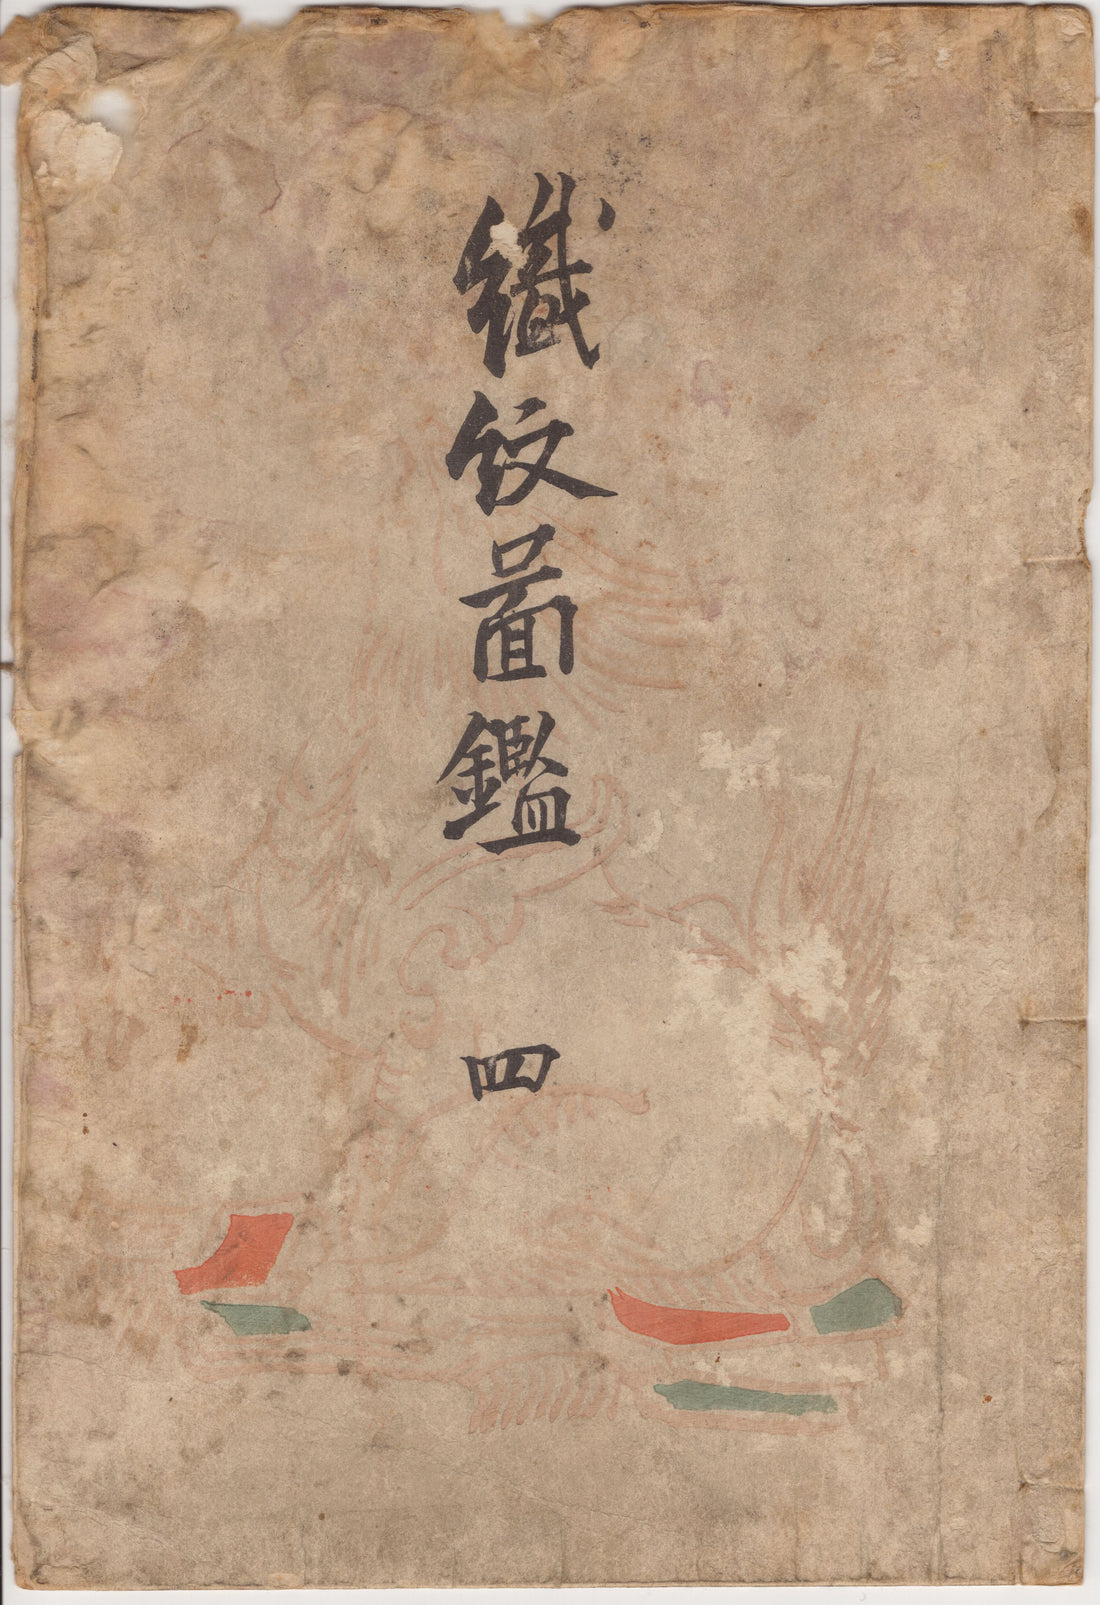 織紋啚鑑 四